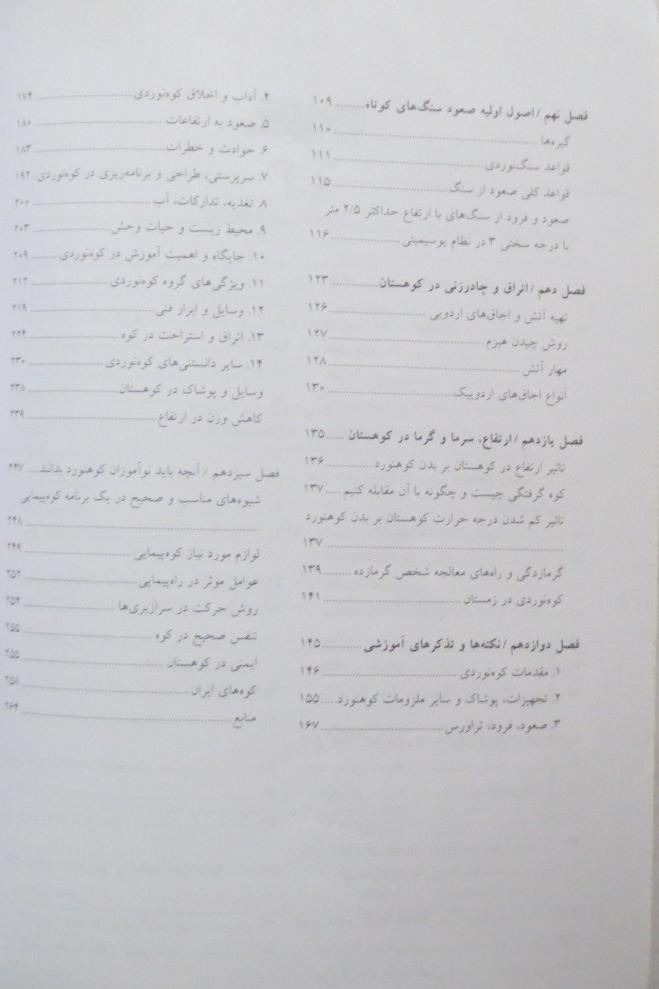 فصل نهم / اصول اولیه صعود سنگ‌های کوتاه ......... ۱۰۹
گیره‌ها ......... ۱۱۰
قواعد سنگ‌نوردی ......... ۱۱۱
قواعد کلی صعود از سنگ ......... ۱۱۵
صعود و فرود از سنگ‌های با ارتفاع حداکثر ۲/۵ متر
با درجه سختی ۳ در نظام یوسیمیتی ......... ۱۱۶
فصل دهم / اتراق و چادرزنی در کوهستان ......... ۱۲۳
تهیه آتش و اجاق‌های اردویی ......... ۱۲۶
روش چیدن هیزم ......... ۱۲۷
مهار آتش ......... ۱۲۸
انواع اجاق‌های اردوییک ......... ۱۳۰
فصل یازدهم / ارتفاع، سرما و گرما در کوهستان ......... ۱۳۵
تاثیر ارتفاع در کوهستان بر بدن کوهنورد ......... ۱۳۶
کوه گرفتگی چیست و چگونه با آن مقابله کنیم ..... ۱۳۷
تاثیر کم شدن درجه حرارت کوهستان بر بدن کوهنورد
......... ۱۳۷
گرمازدگی و راه‌های معالجه شخص گرمازده ......... ۱۳۹
کوه‌نوردی در زمستان ......... ۱۴۱
فصل دوازدهم / نکته‌ها و تذکرهای آموزشی ......... ۱۴۵
۱. مقدمات کوه‌نوردی ......... ۱۴۶
۲. تجهیزات، پوشاک و سایر ملزومات کوهنورد ..... ۱۵۵
۳. صعود، فرود، تراورس ......... ۱۶۷
۴. آداب و اخلاق کوه‌نوردی ......... ۱۷۴
۵. صعود به ارتفاعات ......... ۱۸۰
۶. حوادث و خطرات ......... ۱۸۳
۷. سرپرستی، طراحی و برنامه‌ریزی در کوه‌نوردی . ۱۹۲
۸. تغذیه، تدارکات، آب ......... ۲۰۰
۹. محیط زیست و حیات وحش ......... ۲۰۳
۱۰. جایگاه و اهمیت آموزش در کوه‌نوردی ......... ۲۰۹
۱۱. ویژگی‌های گروه کوه‌نوردی ......... ۲۱۲
۱۲. وسایل و ابزار فنی ......... ۲۱۹
۱۳. اتراق و استراحت در کوه ......... ۲۲۴
۱۴. سایر دانستنی‌های کوه‌نوردی ......... ۲۳۰
وسایل و پوشاک در کوهستان ......... ۲۳۸
کاهش وزن در ارتفاع ......... ۲۳۹
فصل سیزدهم / آنچه باید نوآموزان کوهنورد بدانند ..... ۲۴۷
شیوه‌های مناسب و صحیح در یک برنامه کوه‌پیمایی
......... ۲۴۸
لوازم مورد نیاز کوه‌پیمایی ......... ۲۴۹
عوامل موثر در راه‌پیمایی ......... ۲۵۲
روش حرکت در سرازیری‌ها ......... ۲۵۴
تنفس صحیح در کوه ......... ۲۵۵
ایمنی در کوهستان ......... ۲۵۵
کوه‌های ایران ......... ۲۵۸
منابع ......... ۲۶۴